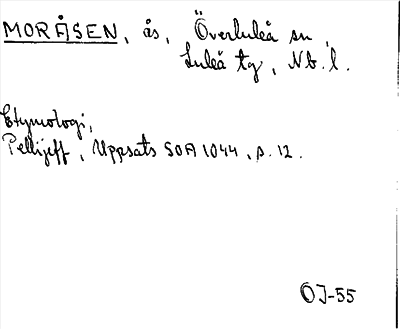 MORÅSEN, ås, Överluleå sn,
Luleå tg, Nb. l.
Etymologi,
Pellijeff, Uppsats SOA 1044, s. 12.
OJ-55